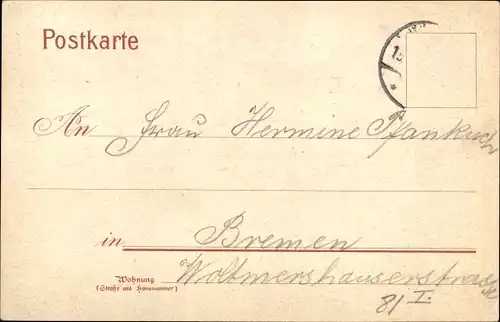 Postkarte
An Frau Hermine Pfankuch
in Bremen
Wohnung Woltmershauserstrasse
(Straße und Hausnummer)
81 I.